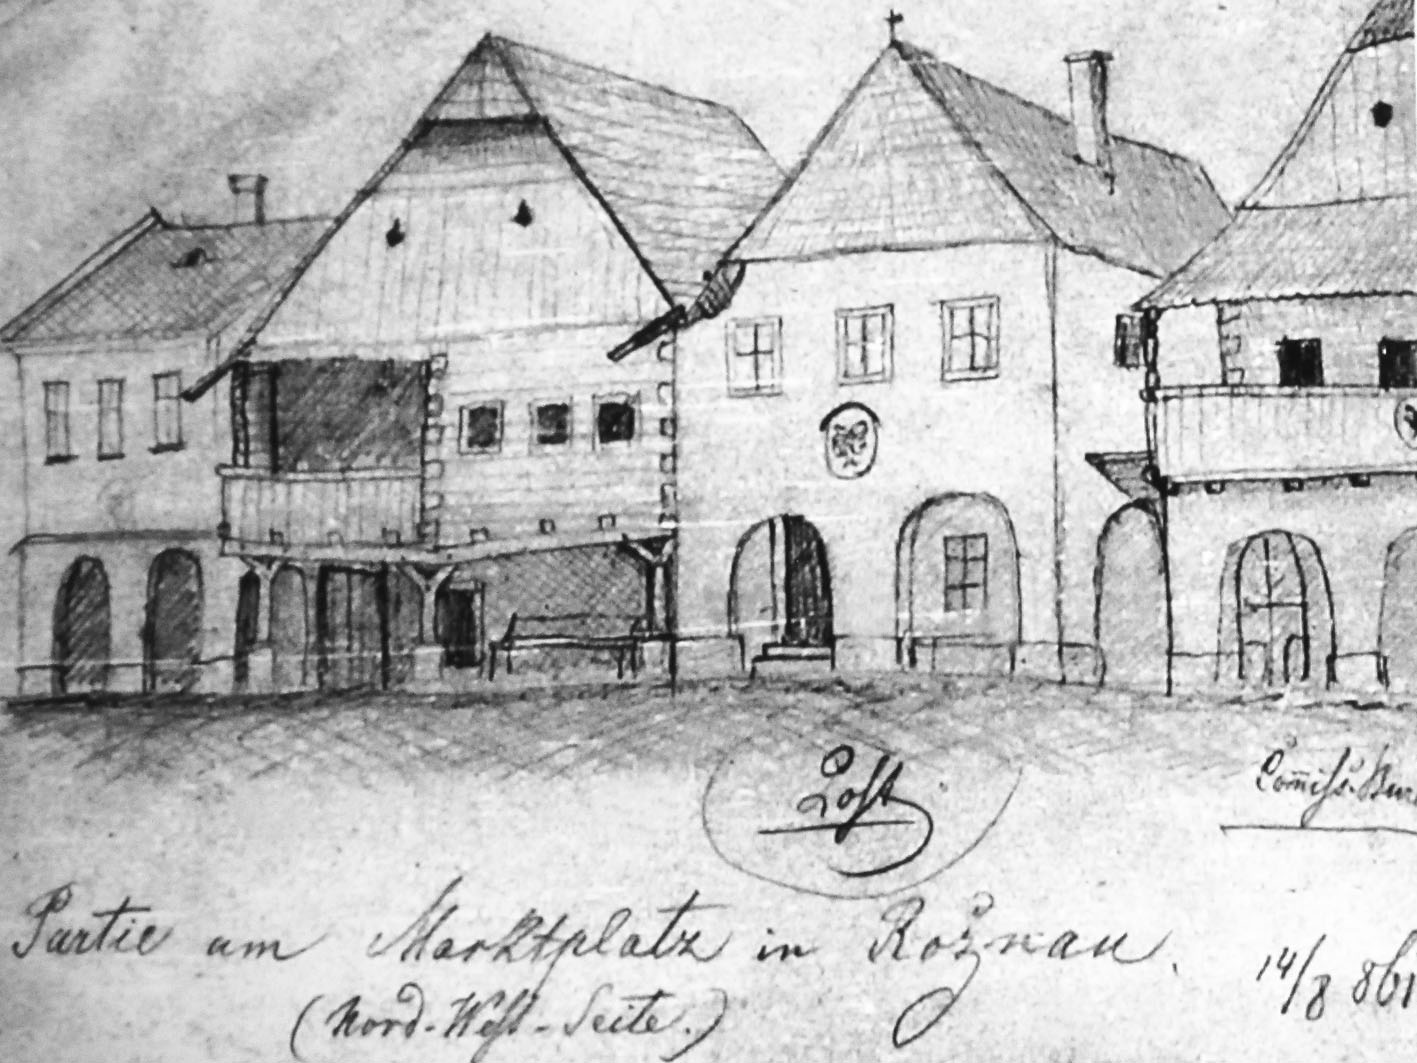 Post
Comiss.
Partie am Marktplatz in Rožnau.
14/8
(Nord-West-Seite.)